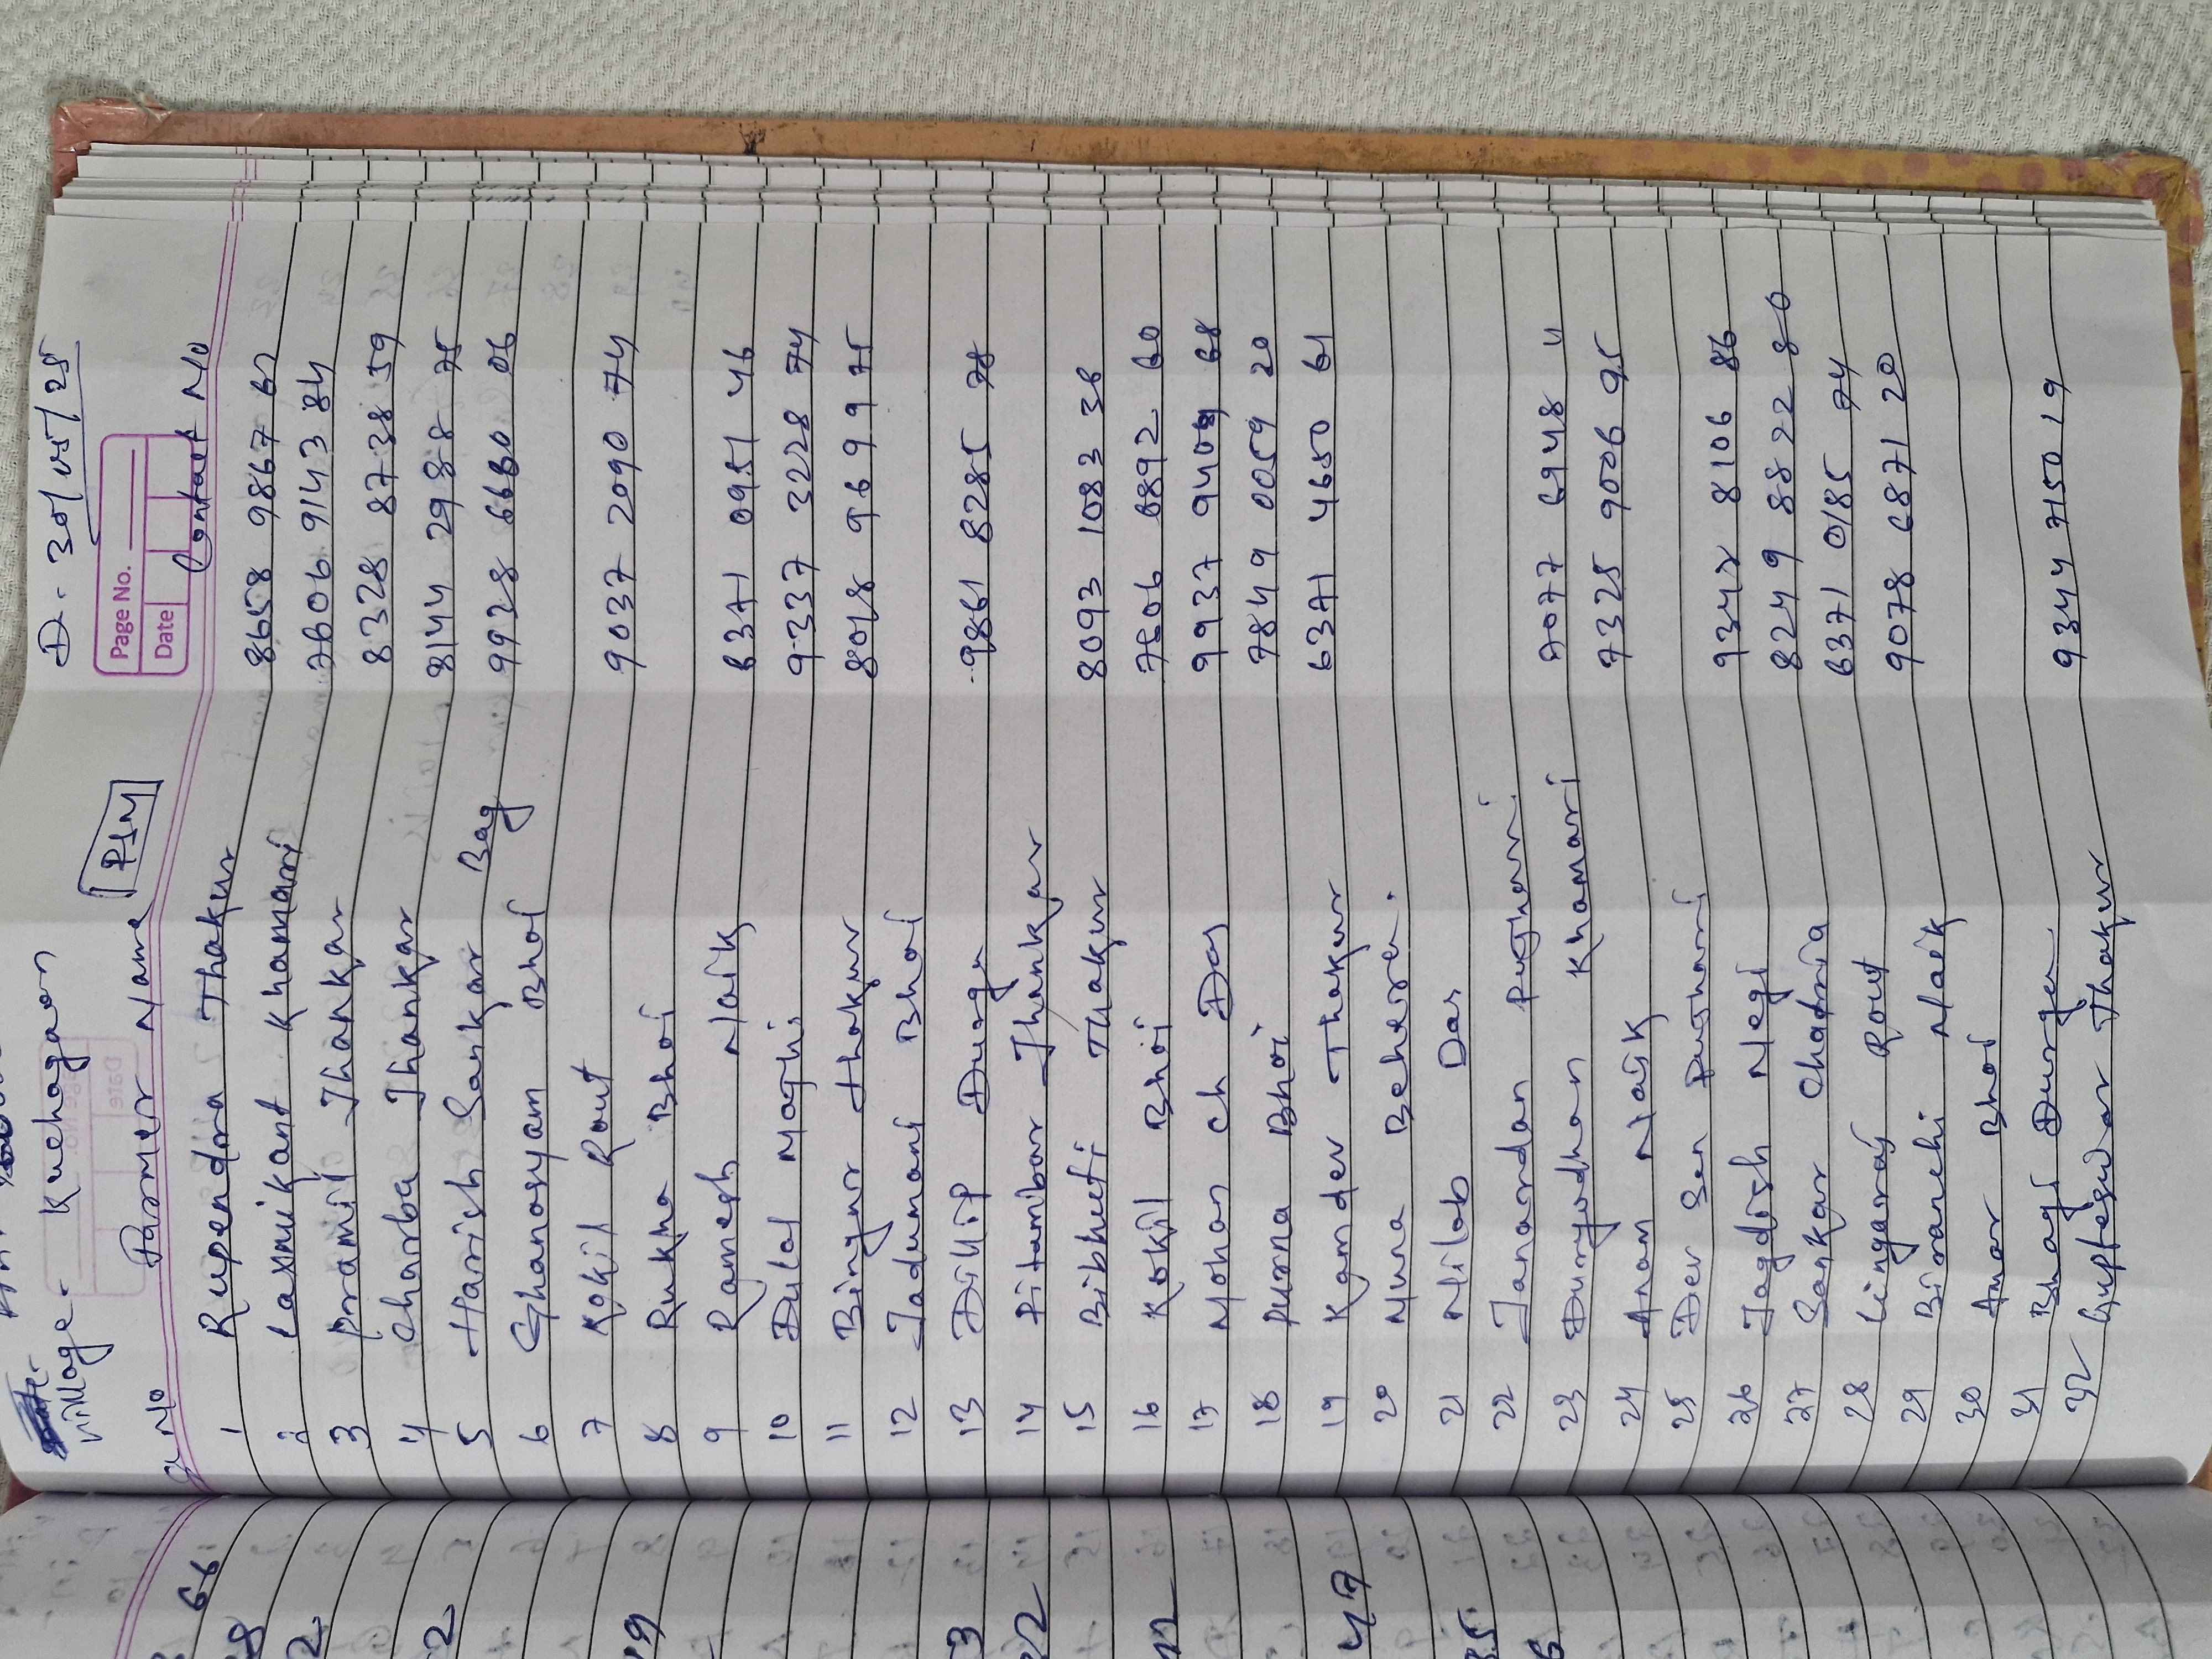 D. 30/05/25
Village - Kuchagaon
PSM
Page No.
Date
S. No Farmer Name Contact No
1 Rupendra Thakur 8658 9867 67
2 Laxmikant Khamari 7606 9143 84
3 Pramil Jhankar 8328 8738 59
4 Charba Jhankar 8144 2988 75
5 Harish Sankar Bag 9928 6680 06
6 Ghanasyam Bhoi
7 Kokil Rout 9037 2090 74
8 Rukha Bhoi
9 Ramesh Naik 6371 0951 46
10 Dulal Maghi 9337 3228 74
11 Binyar Thakur 8018 9699 75
12 Jadumani Bhoi
13 Dillip Duaga 9861 8285 78
14 Pitambar Jhankar
15 Bibhuti Thakur 8093 1083 36
16 Kokil Bhoi 7506 8892 60
17 Mohan ch Das 9937 9409 68
18 Purna Bhoi 7849 0059 20
19 Kamdev Thakur 6371 4650 61
20 Muna Behera.
21 Nilab Das
22 Janardan Pujhari
23 Duryodhan Khamari 7077 6948 11
24 Anam Naik 7325 9006 95
25 Dev Sen Pujhari
26 Jagdish Negi 9342 8106 86
27 Sankar Chatria 8249 8822 80
28 Lingaraj Rout 6371 0185 74
29 Biranchi Naik 9078 6871 20
30 Amar Bhoi
31 Bhagi Durga
32 Gupteswar Thakur 9344 7150 19